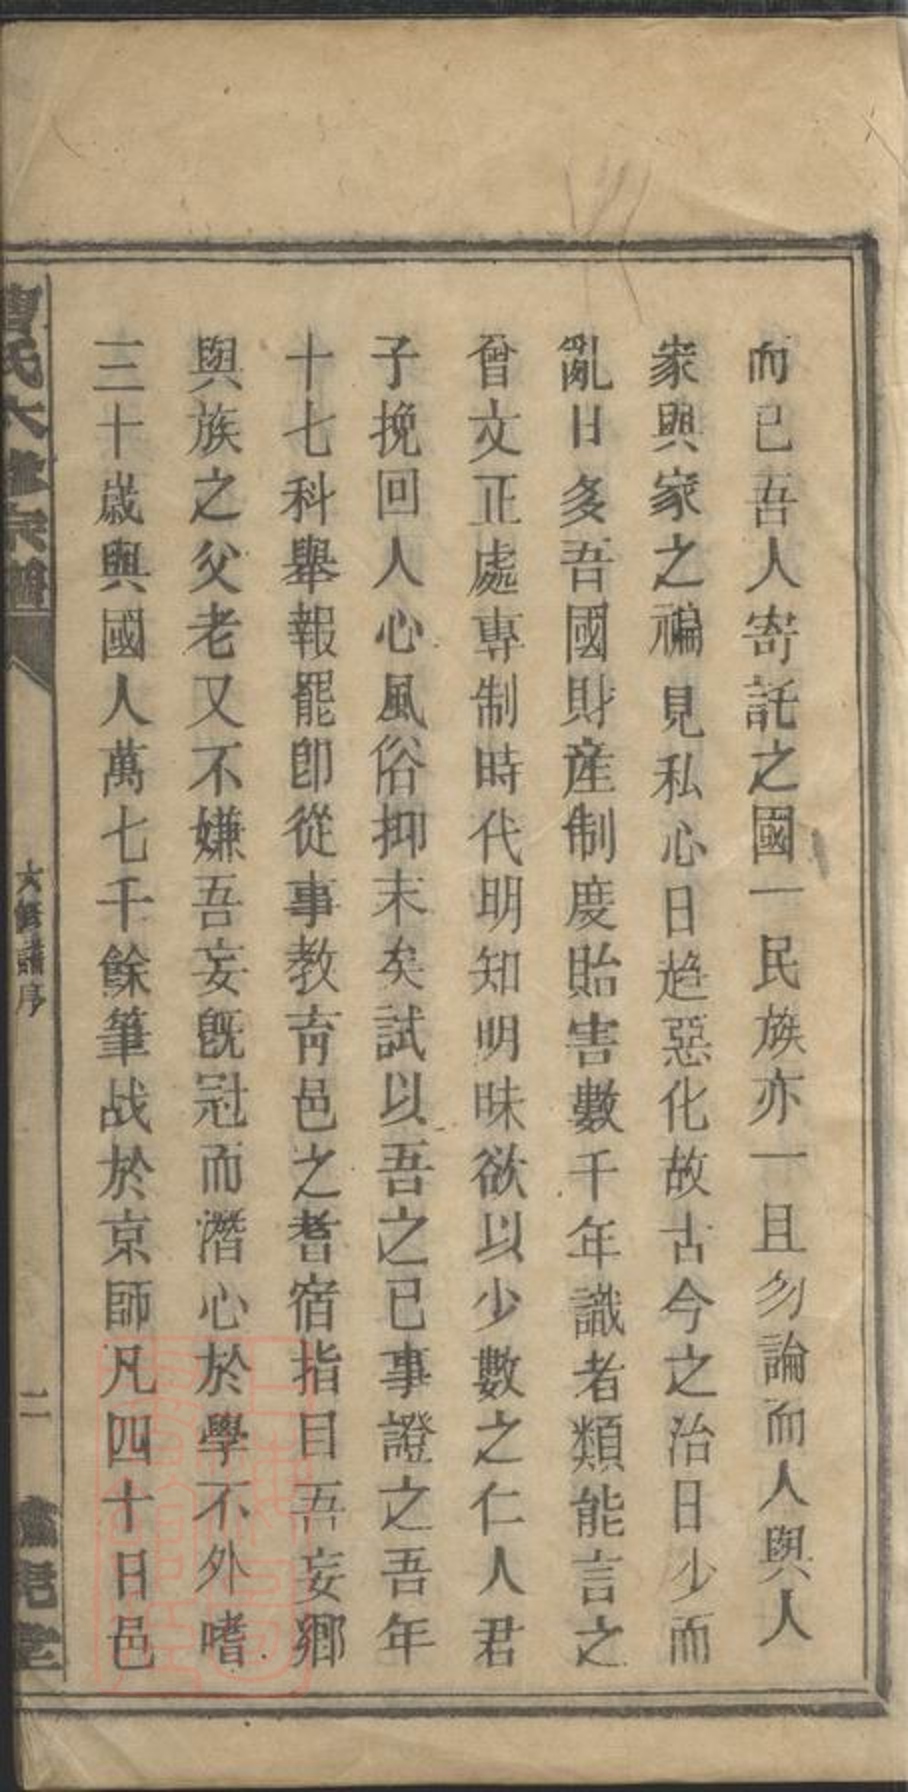 而已吾人寄託之國一民族亦一且勿論而人與人
家與家之褊見私心日趋惡化故古今之治日少而
亂日多吾國財產制度貽害數千年識者類能言之
曾文正處專制時代明知明昧欲以少數之仁人君
子挽回人心風俗抑末矣試以吾之已事證之吾年
十七科舉報罷卽從事教育邑之耆宿指目吾妄鄉
與族之父老又不嫌吾妄旣冠而潛心於學不外嗜
三十歲與國人萬七千餘筆战於京師凡四十日邑
曹氏六修宗譜
六修譜序
二